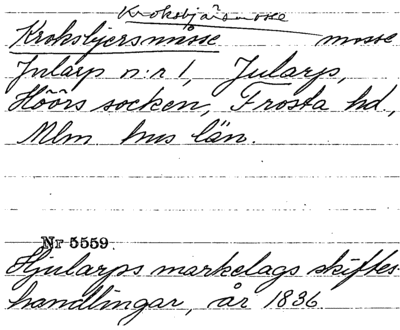 Kroksbjärsmosse
Kroksbjersmåsse mosse
Jularp n:r 1, Jularp,
Höörs socken, Frosta hd.,
Mlm hus län.
Nr 5559.
Hjularps markelags skiftes-
handlingar, år 1836